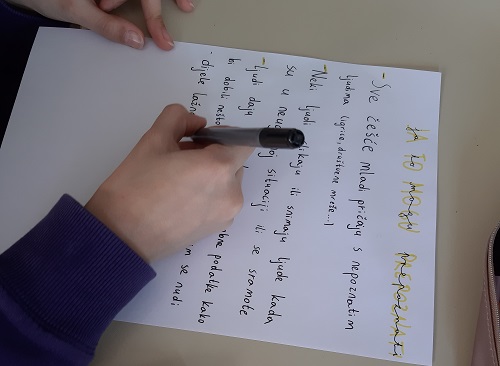 JA TO MOGU PREPOZNATI
- Sve češće mladi pričaju s nepoznatim
ljudima (igrice, društvene mreže...)
- Neki ljudi ili snimaju ljude kada
su u situaciji ili se sramote
- Ljudi daju podatke kako
bi dobili nešto im se nudi
- dijele